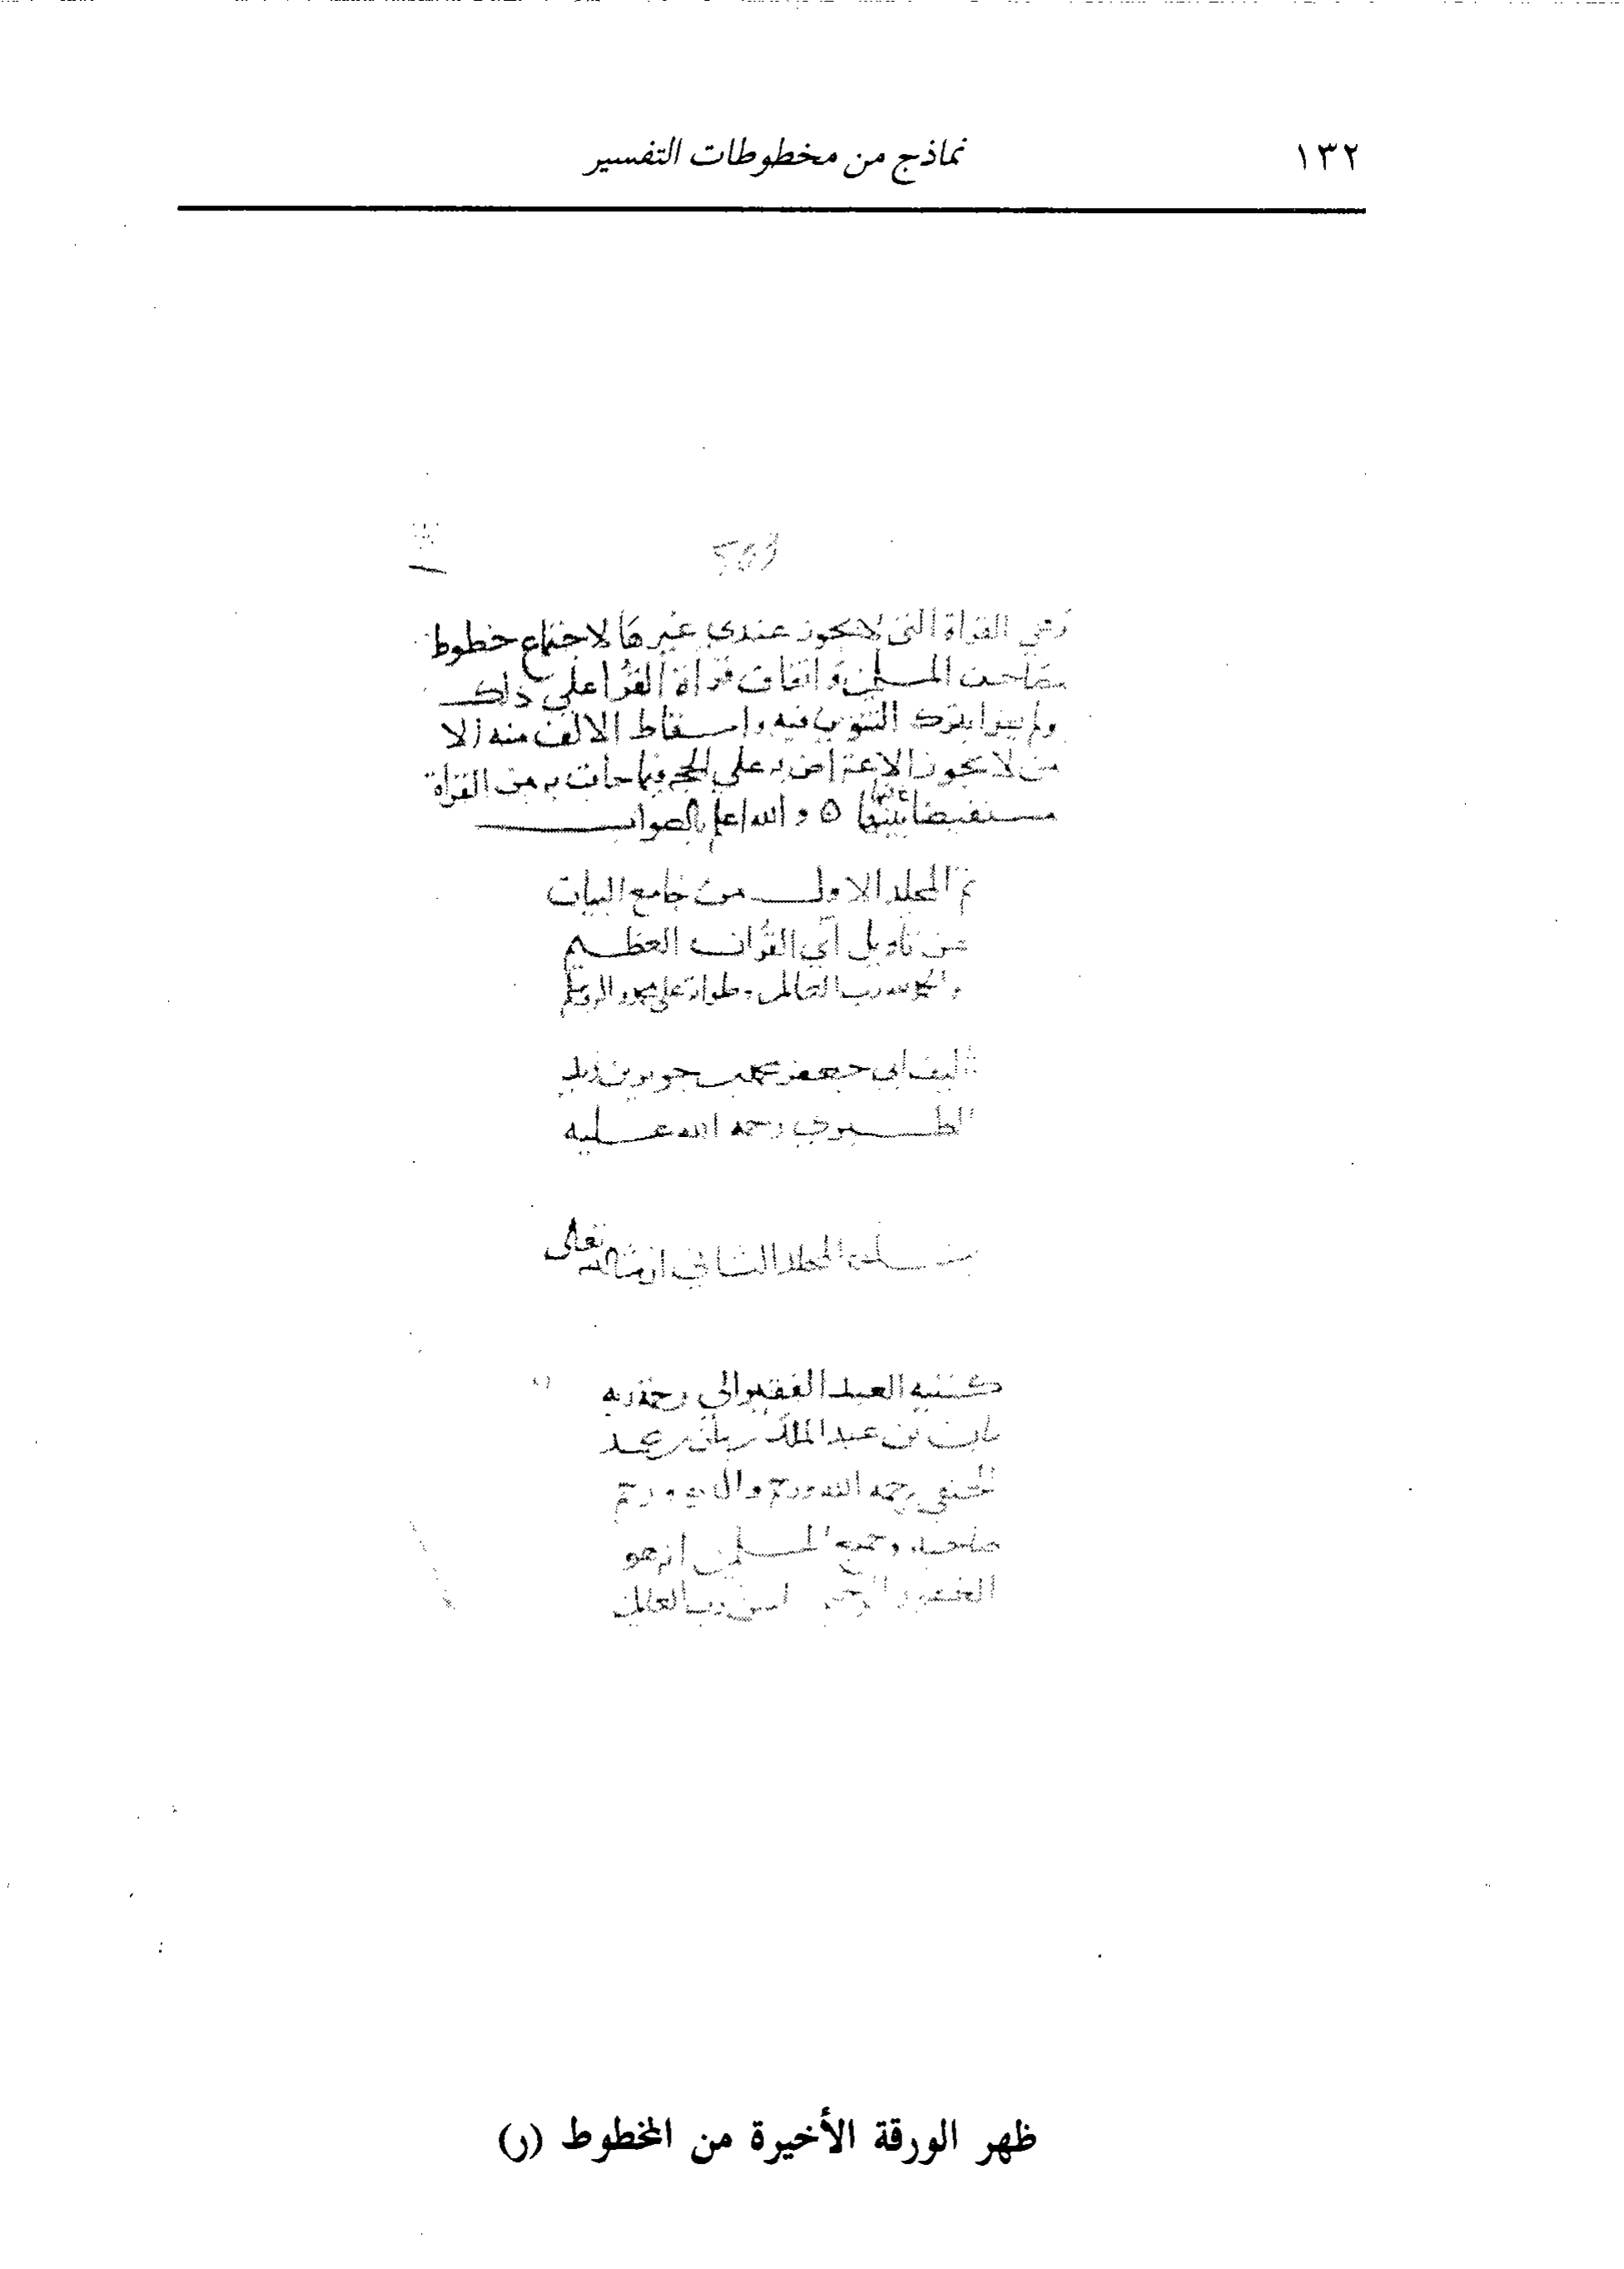 ١٣٢
نماذج من مخطوطات التفسير
القراة التى لا يجوز عندي غيرها لاجتماع خطوط
مصاحف المسلمين واتفاق قراة القرا على ذلك
ولم بترك التنوين فيه واسقاط الالف منه الا
من لا يجوز الاعتراض به على الحجة فيما جات به من القراة
مستفيضا ٥ والله اعلم بالصواب
تم المجلد الاول من جامع البيان
عن تاويل آي القرآن العظيم
والحمد لله رب العالمين
تاليف ابي جعفر محمد بن جرير بن يزيد
الطبري رحمة الله عليه
المجلد الثاني ان شا الله تعالى
كتبه العبد الفقير الى رحمة ربه
بن عبد الملك محمد
الحنفي رحمه الله ورحم
وجميع المسلمين انه هو
الغفور الرحيم امين رب العالمين
ظهر الورقة الأخيرة من المخطوط (ر)